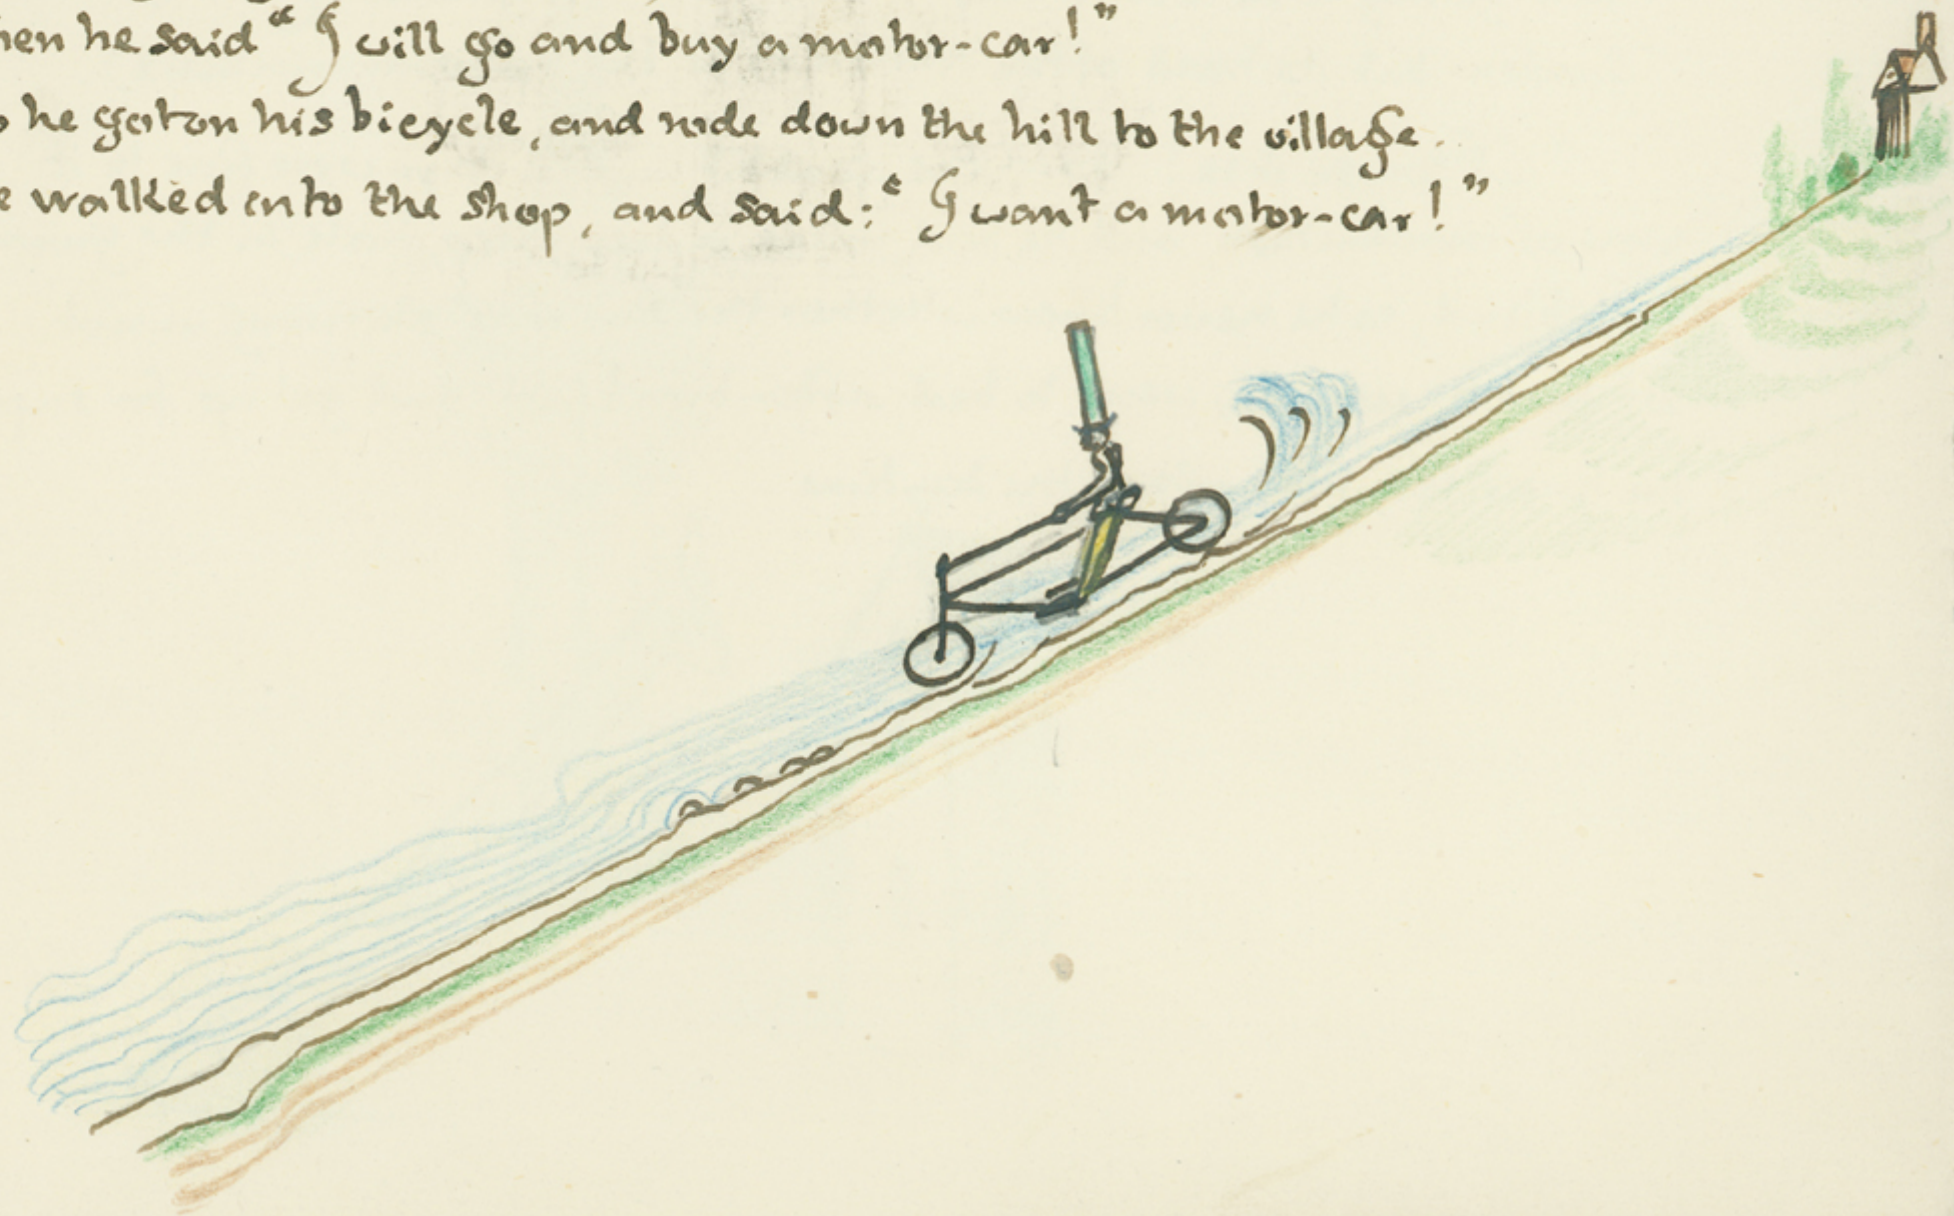 hen he said "I will go and buy a motor-car!"
o he got on his bicycle, and rode down the hill to the village.
e walked into the shop, and said: "I want a motor-car!"